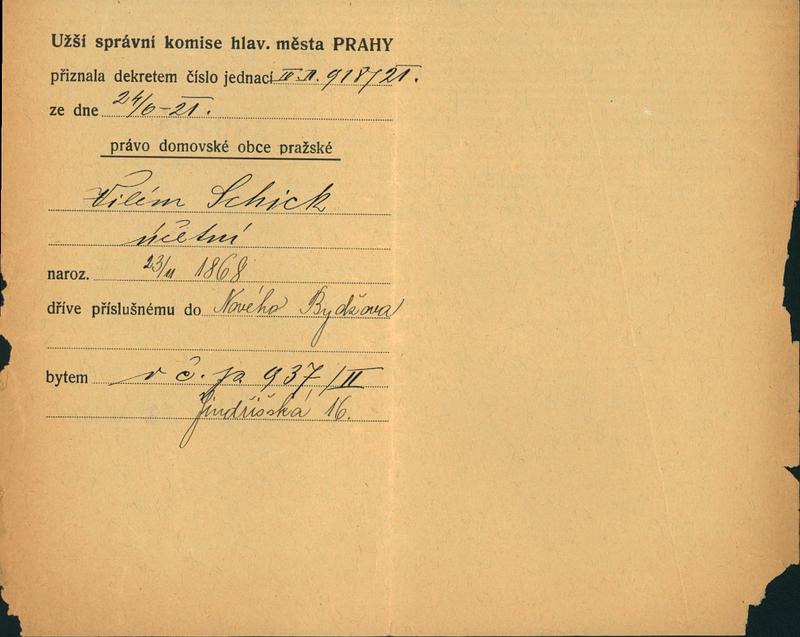 Užší správní komise hlav. města PRAHY
přiznala dekretem číslo jednací II. A. 918/21.
ze dne 24/6-21.
právo domovské obce pražské
Vilém Schick
účetní
naroz. 23/11 1868
dříve příslušnému do Nového Bydžova
bytem v č. p. 937/II
Jindřišská 16.